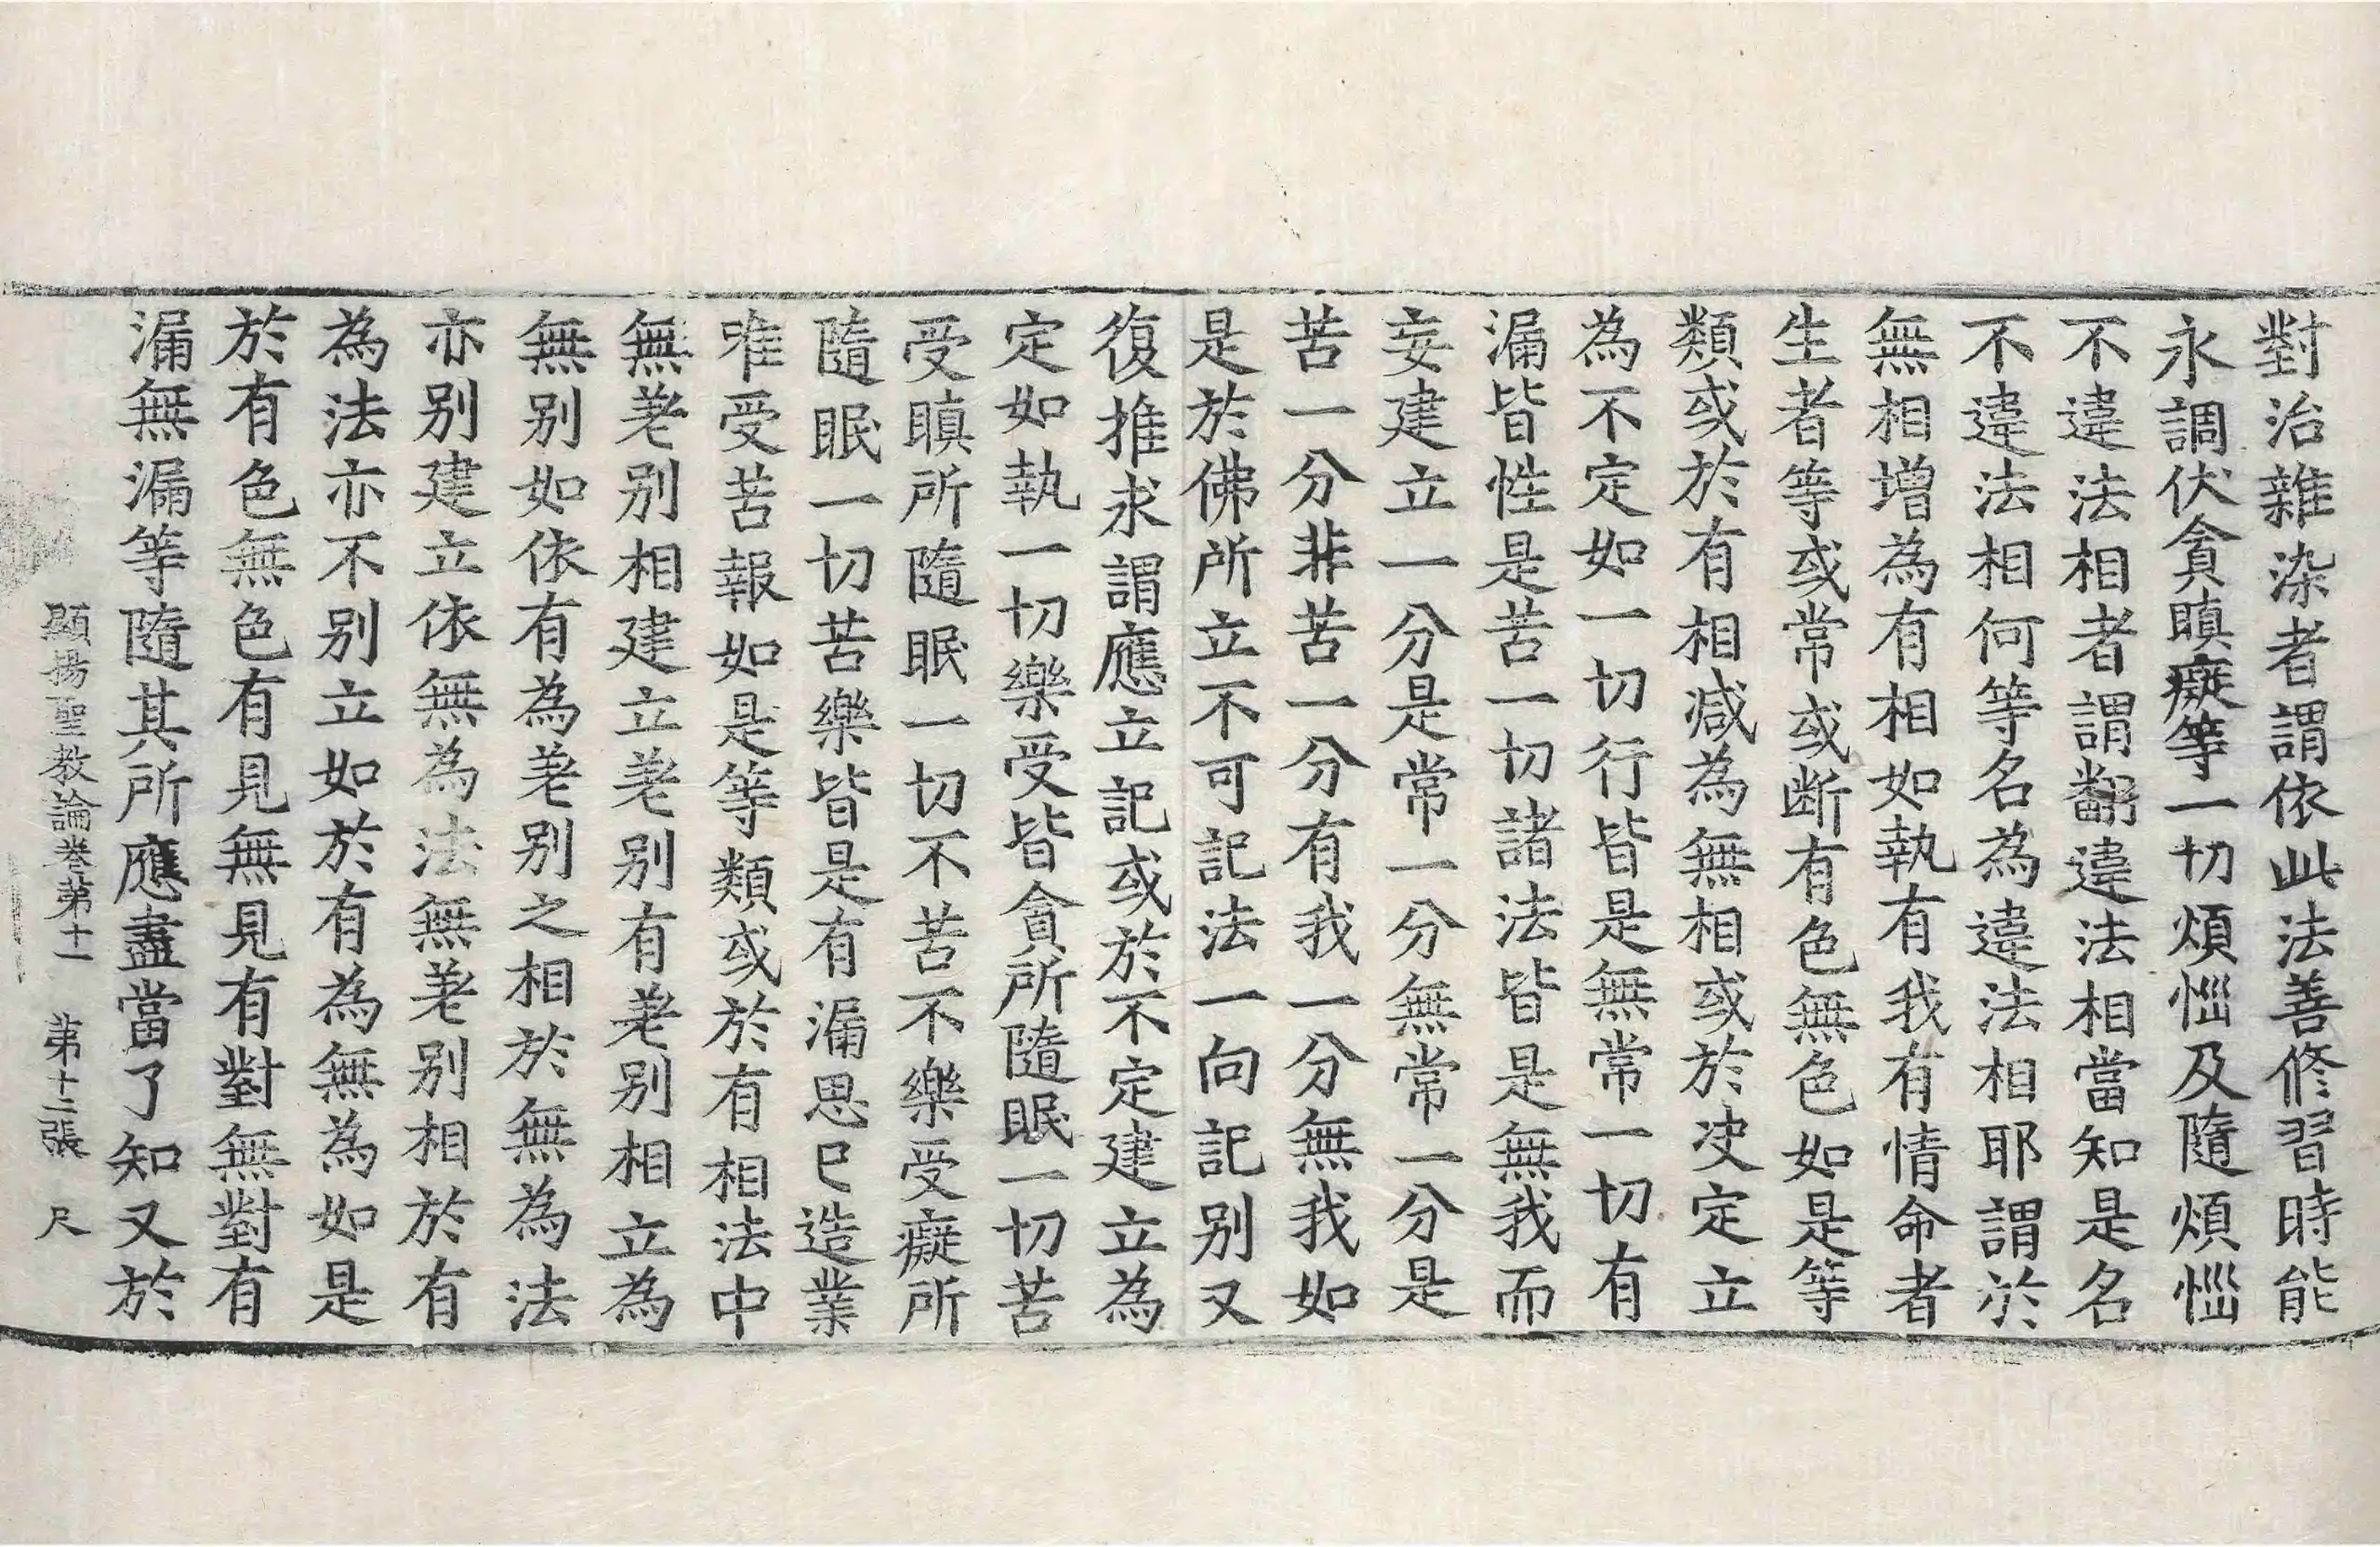 對治雜染者謂依此法善修習時能
永調伏貪瞋癡等一切煩惱及隨煩惱
不違法相者謂翻違法相當知是名
不違法相何等名為違法相耶謂於
無相增為有相如執有我有情命者
生者等或常或断有色無色如是等
類或於有相減為無相或於决定立
為不定如一切行皆是無常一切有
漏皆性是苦一切諸法皆是無我而
妄建立一分是常一分無常一分是
苦一分非苦一分有我一分無我如
是於佛所立不可記法一向記别又
復推求謂應立記或於不定建立為
定如執一切樂受皆貪所隨眠一切苦
受瞋所隨眠一切不苦不樂受癡所
隨眠一切苦樂皆是有漏思已造業
唯受苦報如是等類或於有相法中
無差别相建立差别有差别相立為
無别如依有為差别之相於無為法
亦别建立依無為法無差别相於有
為法亦不别立如於有為無為如是
於有色無色有見無見有對無對有
漏無漏等隨其所應盡當了知又於
顯揚聖教論卷第十一 第十二張 尺